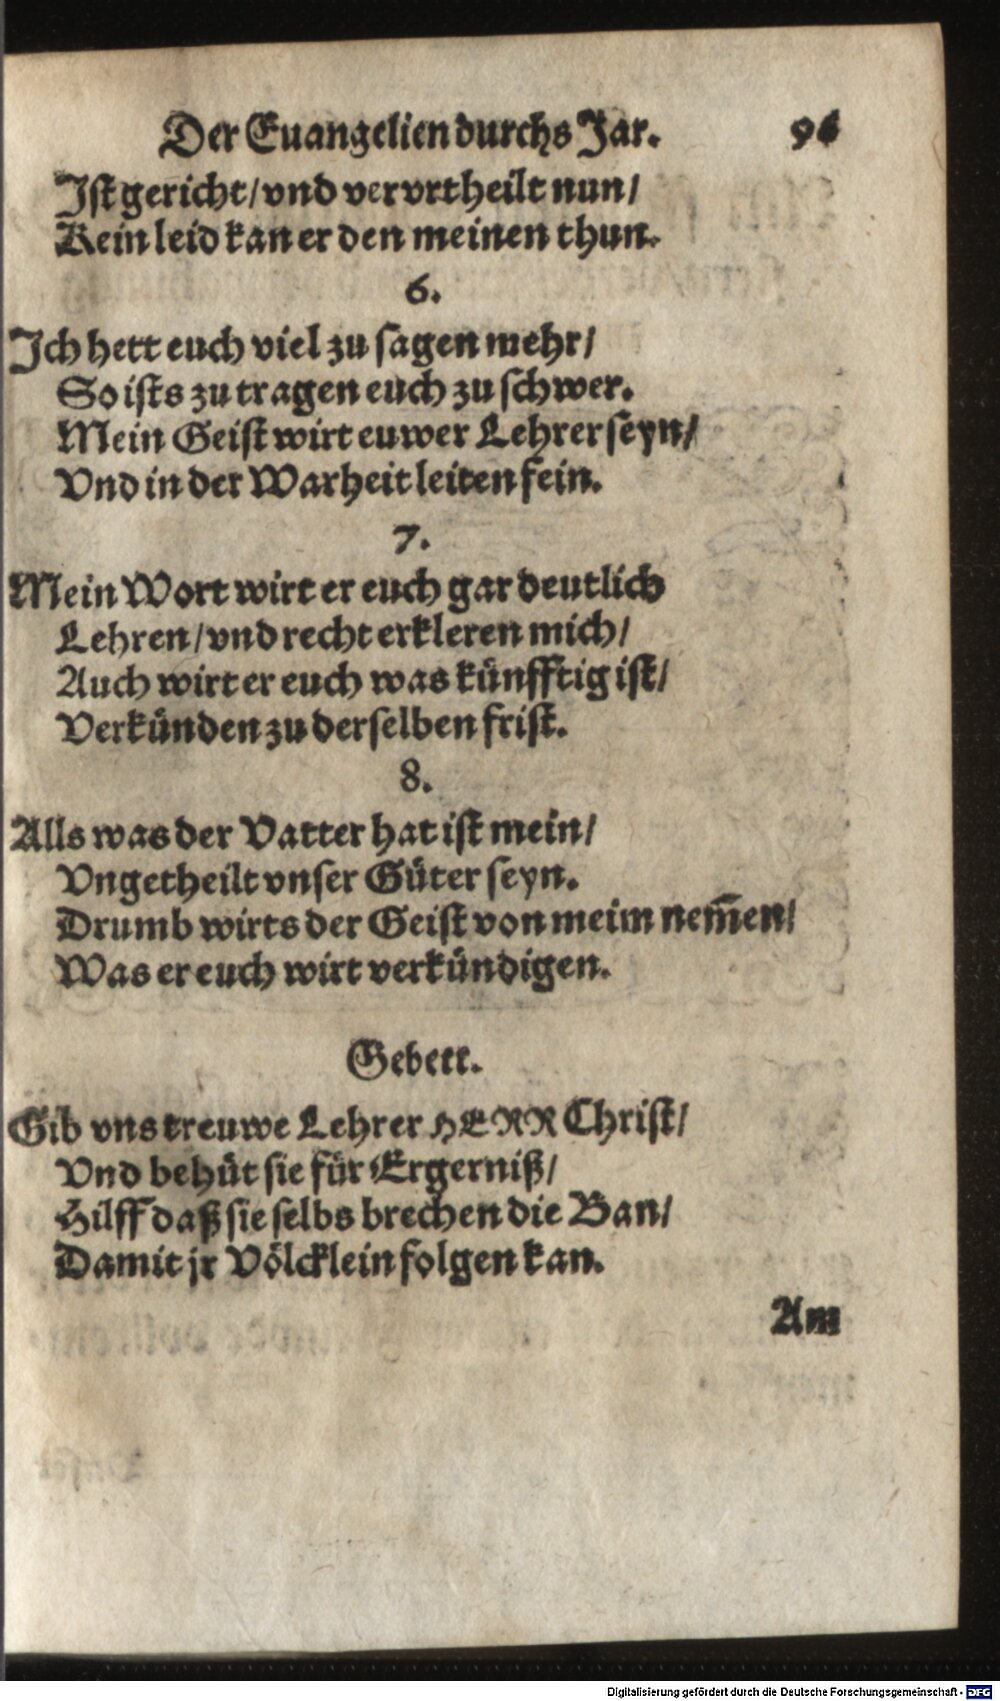 Der Euangelien durchs Jar. 96
Ist gericht/ vnd vervrtheilt nun/
Kein leid kan er den meinen thun.
6.
Ich hett euch viel zu sagen mehr/
So ists zu tragen euch zu schwer.
Mein Geist wirt euwer Lehrer seyn/
Vnd in der Warheit leiten fein.
7.
Mein Wort wirt er euch gar deutlich
Lehren/ vnd recht erkleren mich/
Auch wirt er euch was künfftig ist/
Verkünden zu derselben frist.
8.
Alls was der Vatter hat ist mein/
Vngetheilt vnser Güter seyn.
Drumb wirts der Geist von meim nem̄en/
Was er euch wirt verkündigen.
Gebett.
Gib vns treuwe Lehrer HERR Christ/
Vnd behüt sie für Ergerniß/
Hilff daß sie selbs brechen die Ban/
Damit jr Völcklein folgen kan.
Am
Digitalisierung gefördert durch die Deutsche Forschungsgemeinschaft - DFG